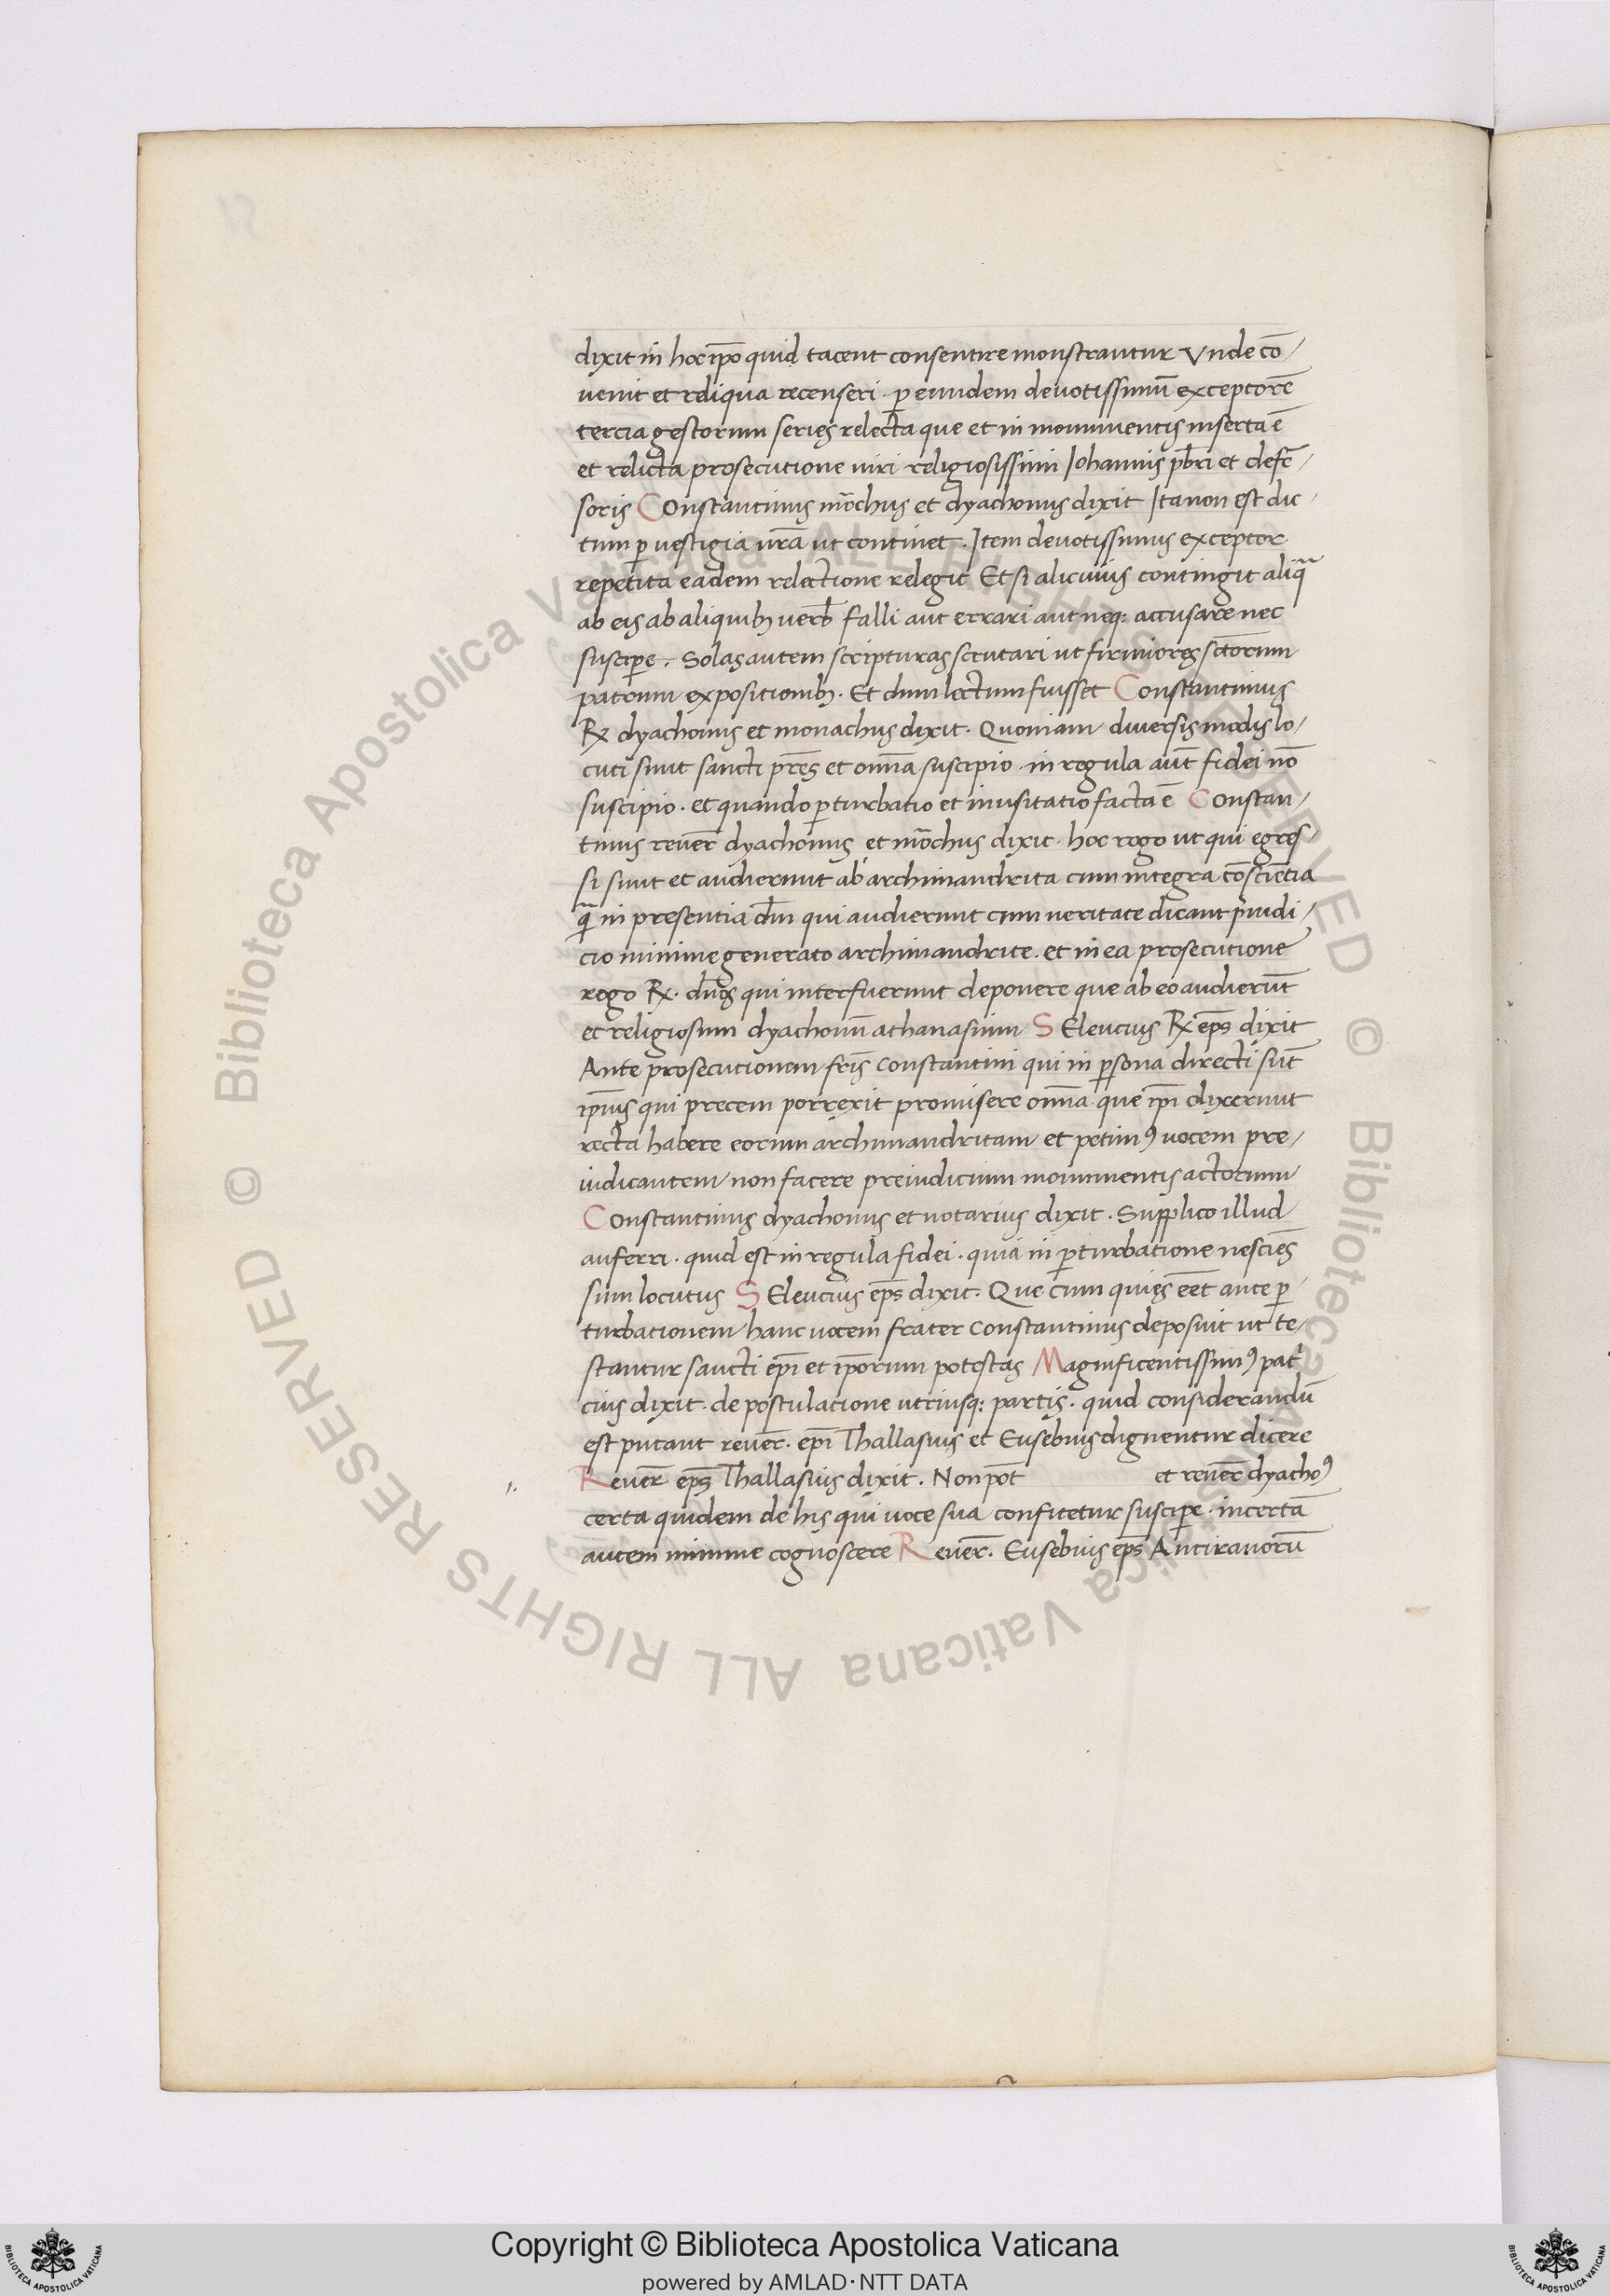 dixit in hoc ip̄o quid tacent consentire monstrantur Vnde cō/
uenit et reliqua recenseri · ꝑ eundem deuotissimū exceptorē
tercia gestorum series relecta que et in monumentis inserta ē
et relicta prosecutione uiri religiosissimi Johannis pb̄ri et defē/
soris Constantinus mōchus et dyachonus dixit Ita non est dic/
tum ꝑ uestigia ur̄a ut continet . Item deuotissimus exceptor
repetita eadem relectione relegit Et si alicuius contingit aliq̄
ab eis ab aliquibꝫ uerb̄ falli aut errari aut neq: accusare nec
suscipe . Solas autem scripturas scrutari ut firmiores sc̄torum
patrum expositionibꝫ . Et dum lectum fuisset Constantinus
R̶x dyachonus et monachus dixit . Quoniam diuersis modis lo/
cuti sunt sancti pr̄es et omn̄a suscipio . in regula aut̄ fidei nō
suscipio . et quando ꝑturbatio et inusitatio facta ē Constan/
tinus reuer̄ dyachonus et mōchus dixit . hoc rogo ut qui egres
si sunt et audierunt ab archimandrita cum integra cōsciētia
q̄ in presentia dn̄i qui audierunt cum ueritate dicant p̄iudi/
cio minime generato archimandrite . et in ea prosecutione
rogo Rx . dn̄os qui interfuerunt deponere que ab eo audierūt
et religiosum dyachonū athanasium SEleucius Rx ep̄s dixit
Ante prosecutionem fr̄is Constantini qui in ꝑsona directi sūt
ip̄ius qui precem porrexit promisere omn̄a que ip̄i dixerunt
recta habere eorum archimandritam et petimꝰ uocem pre/
iudicantem non facere preiudicium monumentis actorum
Constantinus dyachonus et notarius dixit . Supplico illud
auferri . quid est in regula fidei . quia in ꝑturbatione nesciēs
sum locutus SEleucius ep̄s dixit . Que cum quies eēt ante ꝑ/
turbationem hanc uocem frater Constantinus deposuit ut te/
stantur sancti ep̄i et ip̄orum potestas Magnificentissimꝰ patⁱ
cius dixit . de postulatione utriusq: partis . quid considerandū
est putant reuer̄ . ep̄i Thallasius et Eusebius dignentur dicere
Reuer̄ ep̄s Thallasius dixit . Non pōt et reuer̄ dyachoꝰ
certa quidem de his qui uoce sua confitetur suscipe . incertā
autem minime cognoscere Reuer̄ . Eusebius ep̄s Antiranorū
Copyright © Biblioteca Apostolica Vaticana
powered by AMLAD·NTT DATA
© Biblioteca Apostolica Vaticana ALL RIGHTS RESERVED © Biblioteca Apostolica Vaticana ALL RIGHTS RESERVED
BIBLIOTECA APOSTOLICA VATICANA
BIBLIOTECA APOSTOLICA VATICANA